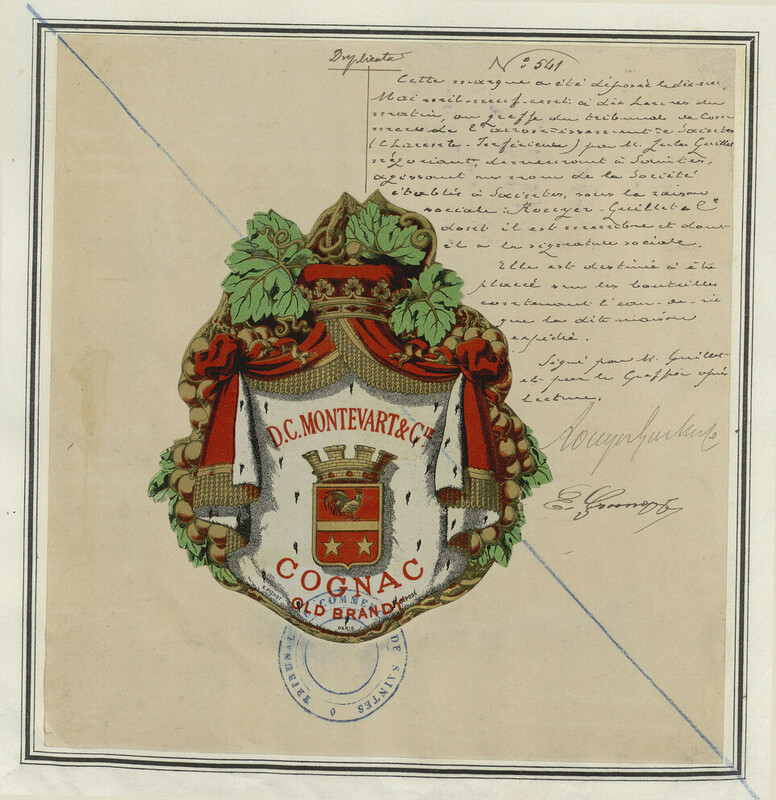 Duplicata
N° 541
Cette marque a été déposée le dix-neuf
Mai mil neuf-cent à dix heures du
matin, au greffe du tribunal de Com
merce de l'arrondissement de Saintes
(Charente-Inférieure) par M. Jules Guillet
négociant, demeurant à Saintes,
agissant au nom de la Société
établie à Saintes, sous la raison
sociale: Rouyer-Guillet & Cie
dont il est membre et dont
il a la signature sociale.
Elle est destinée à être
placée sur les bouteilles
contenant l'eau-de-vie
que la dite maison
expédie.
Signé par M. Guillet
et par le Greffier après
lecture.
Rouyer Guillet & Co
D.C. MONTEVART & CIE
COGNAC
OLD BRANDY
DÉPOSÉ
PARIS
TRIBUNAL
DE COMMERCE
DE SAINTES